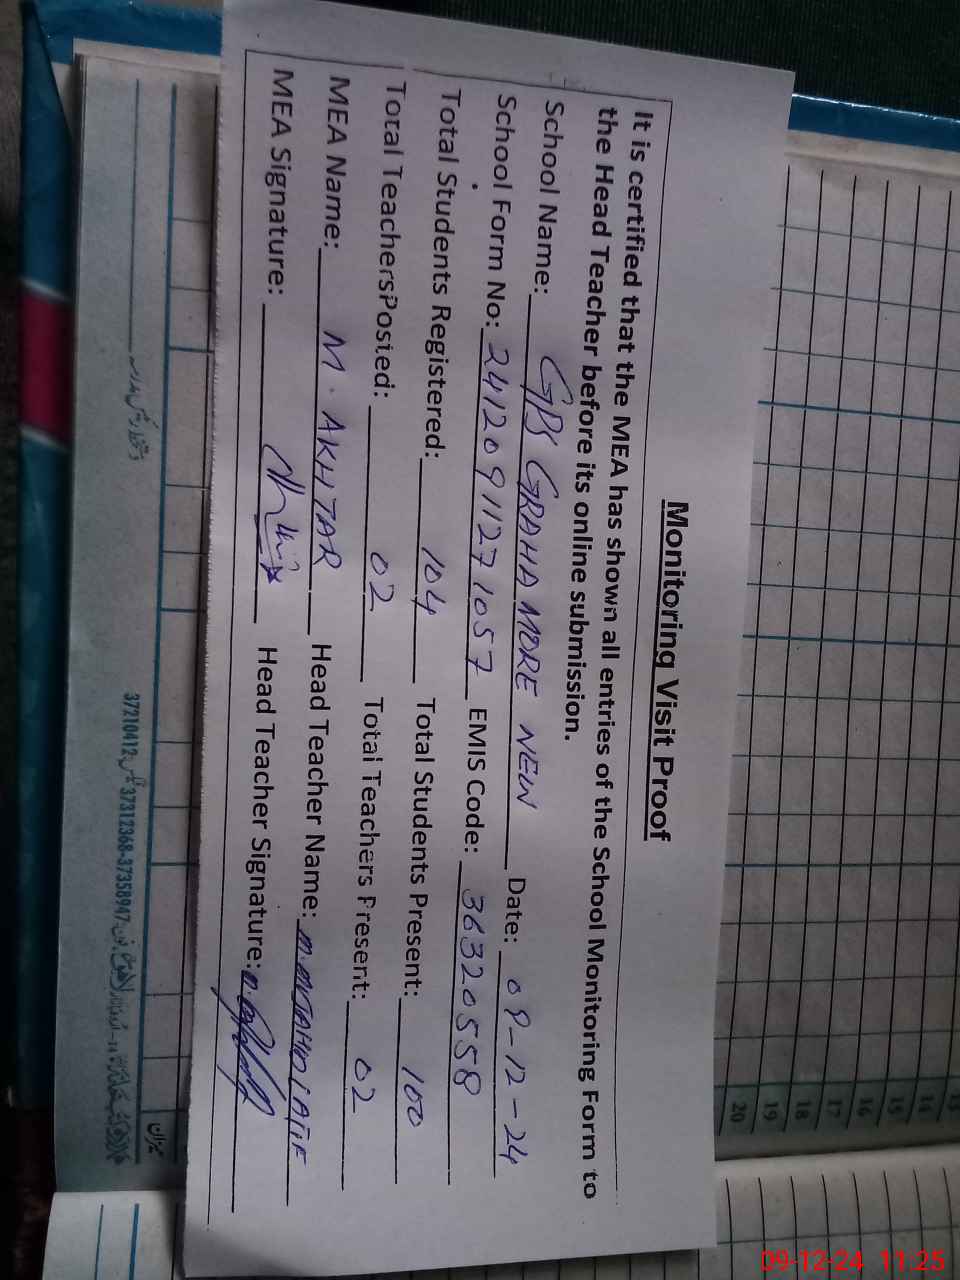 Monitoring Visit Proof
It is certified that the MEA has shown all entries of the School Monitoring Form to
the Head Teacher before its online submission.
School Name: GPS GRAHA MORE NEW Date: 09-12-24
School Form No: 24120911271057 EMIS Code: 36320558
Total Students Registered: 104 Total Students Present: 100
Total Teachers Posted: 02 Total Teachers Present: 02
MEA Name: M. AKHTAR Head Teacher Name:
MEA Signature: Head Teacher Signature:
13
14
15
16
17
18
19
20
نگران
37210412 37312368-37358947
09-12-24 11:25